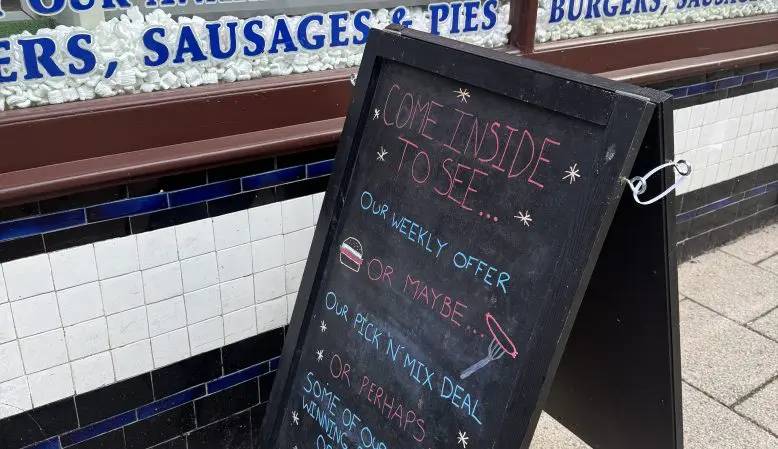 ERS, SAUSAGES & PIES
BURGERS, SAUSA
COME INSIDE
TO SEE...
OUR WEEKLY OFFER
OR MAYBE...
OUR PICK 'N' MIX DEAL
OR PERHAPS
SOME OF OUR
WINNING